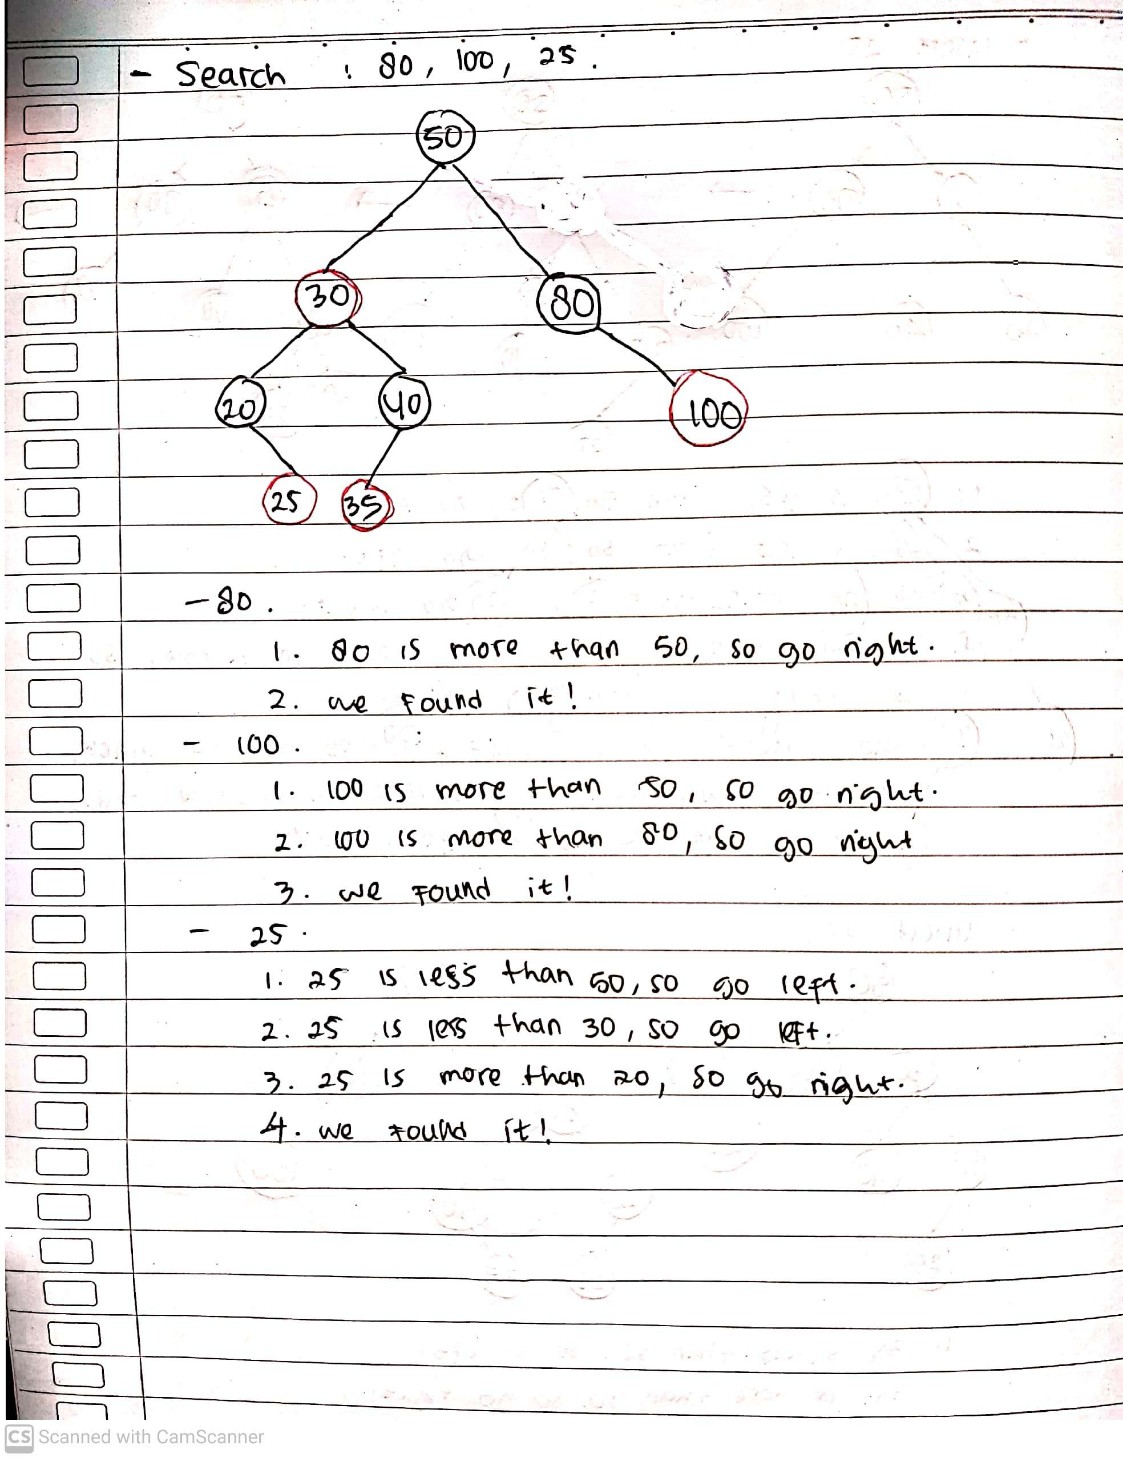 - Search : 80, 100, 25.
50
30 80
20 40 100
25 35
- 80.
1. 80 is more than 50, so go right.
2. we Found it!
- 100.
1. 100 is more than 50, so go right.
2. 100 is more than 80, so go right
3. we Found it!
- 25.
1. 25 is less than 50, so go left.
2. 25 is less than 30, so go left.
3. 25 is more than 20, so go right.
4. we Found it!
CS Scanned with CamScanner